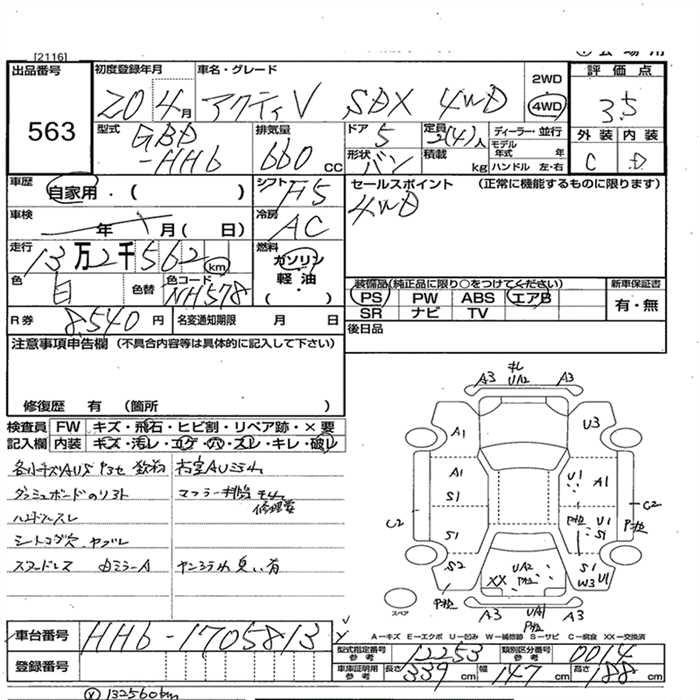 [2116]
出品番号
563
初度登録年月
20 4月
車名・グレード
アクティV SDX 4WD
2WD
4WD
評価点
3.5
外装 内装
C D
型式
GBD
-HH6
排気量
660 cc
ドア 5
形状 バン
定員 2(4)人
積載 kg
ディーラー・並行
モデル年式 年
ハンドル 左・右
車歴
自家用・( )
シフト F5
セールスポイント (正常に機能するものに限ります)
4WD
車検
年 月( 日)
冷房 AC
走行
13万2千562 km
燃料
ガソリン
軽油
・
色
白
色替
色コード
NH578
装備品(純正品に限り○をつけてください)
PS PW ABS エアB
SR ナビ TV
新車保証書
有・無
R券 8,540円
名変通知期限 月 日
後日品
注意事項申告欄 (不具合内容等は具体的に記入して下さい)
修復歴 有 (箇所 )
検査員記入欄
FW キズ・飛石・ヒビ割・リペア跡・×要
内装 キズ・汚レ・コゲ・穴・スレ・キレ・破レ
各小キズAU5 P3セ 数初
ダッシュボードのリフト
ハンドルスレ
シートコゲ穴、ヤブレ
スマードレス 内ミラーA
マフラー判監
修理要
ヤンミテイル 臭い有
A3 キレ UA2 A3
A1 U3
A1 S1 U1 A1
C2 C2
S1 P拉 U1 S1 P拉
S2 UA2 P拉 XX S1 W3 U1
P拉
A3 UA1 P拉 A3
スペア
A-キズ E-エクボ U-凹み W-補修跡 S-サビ C-腐食 XX-交換済
車台番号 HH6-1705813
登録番号
型式指定番号 参考 12253
類別区分番号 参考 0014
車庫証明用 参考 長さ 339 cm 幅 147 cm 高さ 188 cm
132560km